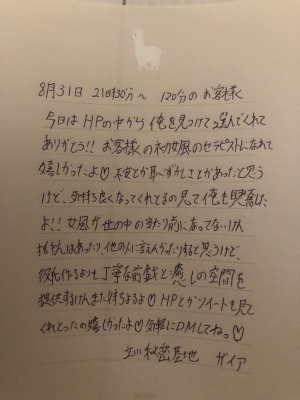 8月31日 21時30分〜 120分のお客様
今日はHPの中から俺を見つけて選んでくれて
ありがとう!! お客様の初女風のセラピストになれて
嬉しかったよ♡ 不安とか恥ずかしさとかあったと思う
けど、気持ち良くなってくれてるの見て俺も興奮した
よ!! 女風が世の中の当たり前になってないけん
抵抗はあったり、他の人に言えんかったりすると思うけど、
彼氏作るよりも丁寧な前戯と癒しの空間を
提供するけんまた待ちよるよ♡ HPとかツイートも見て
くれとったの嬉しかったよ♡ 気軽にDMしてね。♡
秘密基地 ガイア